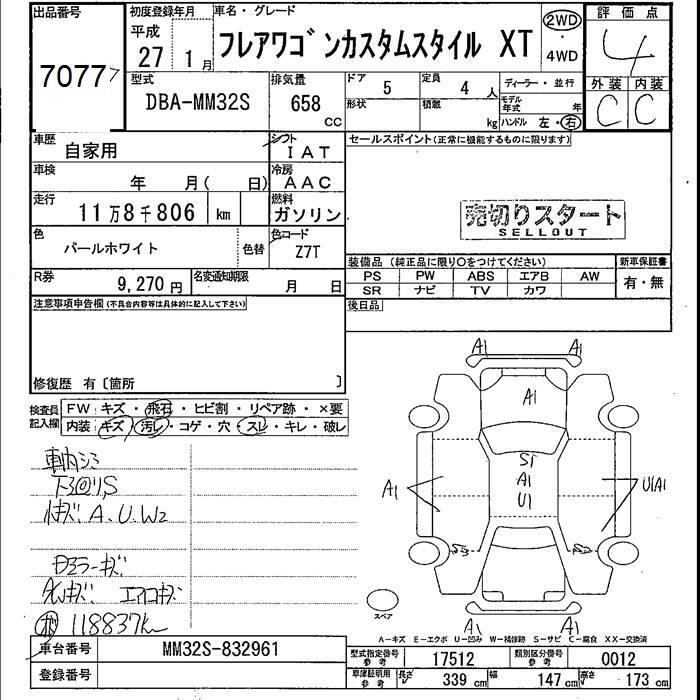 出品番号
7077
7
初度登録年月
平成
27年 1月
車名・グレード
フレアワゴンカスタムスタイル XT
2WD
・
4WD
評価点
4
外装 内装
C C
型式
DBA-MM32S
排気量
658
CC
ドア
5
定員
4 人
形状
積載
kg
ディーラー・並行
モデル年式 年
ハンドル 左・右
車歴
自家用
シフト
IAT
車検
年 月( 日)
冷房
AAC
走行
11万8千806 km
燃料
ガソリン
色
パールホワイト
色替
色コード
Z7T
R券
9,270円
名変通知期限
月 日
セールスポイント(正常に機能するものに限ります)
売切りスタート
SELLOUT
装備品 (純正品に限り○をつけてください)
新車保証書
PS PW ABS エアB AW
SR ナビ TV カワ
有・無
後日品
注意事項申告欄(不具合内容等は具体的に記入して下さい)
修復歴 有〔箇所 〕
検査員
記入欄
FW キズ・飛石・ヒビ割・リペア跡・×要
内装 キズ・汚レ・コゲ・穴・スレ・キレ・破レ
車内シミ
下3@リ,S
A.U.W2
Dミラーキズ
エアロキズ
118837km
A1 A1
A1
S1
A1
U1
A1
U1A1
A1 A1
スペア
A-キズ E-エクボ U-凹み W-補修跡 S-サビ C-腐食 XX-交換済
車台番号
MM32S-832961
登録番号
型式指定番号
参考
17512
類別区分番号
参考
0012
車庫証明用
参考
長さ
339 cm
幅
147 cm
高さ
173 cm